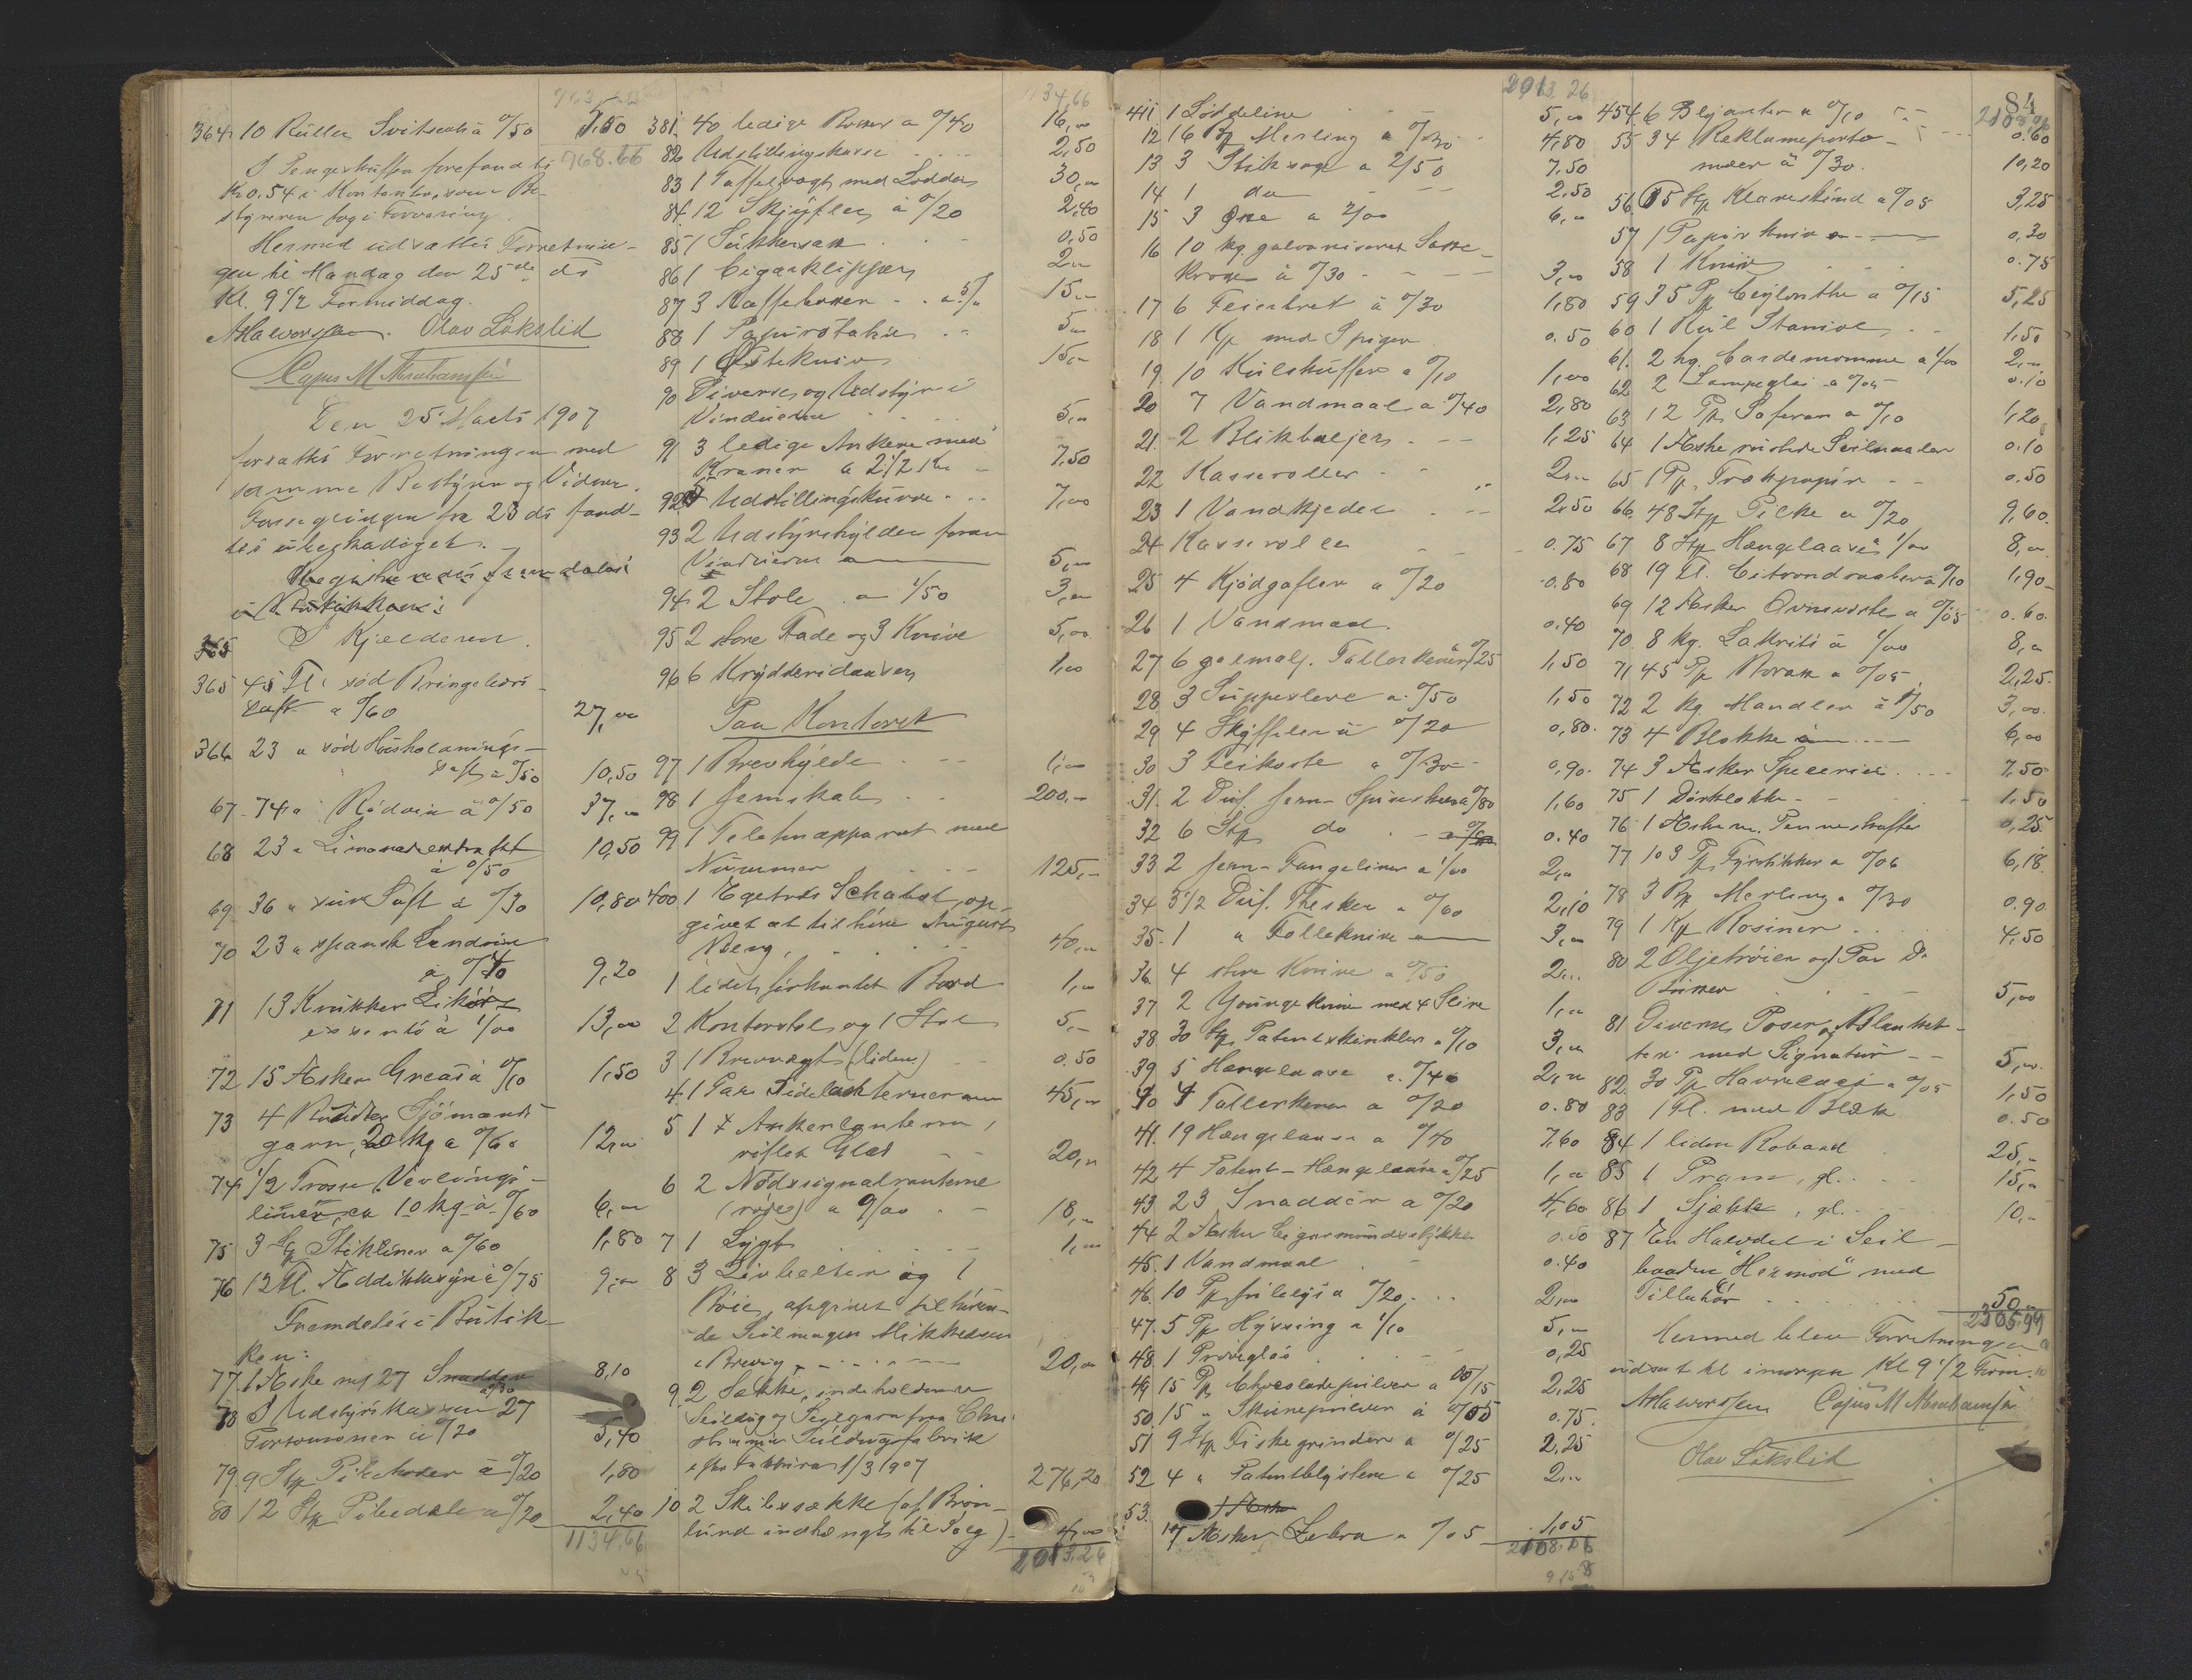 364 10 Ruller Svitsento a 0/50 5,50
968.66
I Pengeskuffen forefandtes
Kr 0.54 i Kontanter, som Be-
styreren tog i Forvaring.
Hermed udsattes Forretnin-
gen til Mandag den 25de ds
Kl. 9 1/2 Formiddag.
AHalvorsen. Olav Lökslid
Cajus M Abrahamsen
Den 25 Marts 1907
forsattes Forretningen med
samme Bestyrer og Vidner.
Forseglingen fra 23 ds fand-
tes ubeskadiget.
Registreredes fremdeles
i Butikken:
I Kjælderen.
365 45 Fl. rød Bringebær-
saft a 0/60 27,00
366 23 " rød Husholdnings-
saft a 0/50 10,50
67 74 " Rødvin à 0/50 37,00
68 23 " Limonadeextrakt
à 0/50 10,50
69 36 " sur Saft a 0/30 10,80
70 23 " spansk Landvin
à 0/40 9,20
71 13 Krukker Likör-
essents à 1/00 13,00
72 15 Æsker Grcas à 0/10 1,50
73 4 Bundter Sjömands-
garn, 20 kg a 0/60 12,00
74 1/2 Trosse Vevlings-
liner, ca 10 kg à 0/60 6,00
75 3 Stk Stikliner a 0/60 1,80
76 12 Fl. Æddiksyre à 0/75 9,00
Fremdeles i Butik-
ken:
77 1 Æske m/ 27 Snadder
a 0/30 8,10
78 I Udstyrskassen 27
Portemonær à 0/20 5,40
79 9 Stk Pibehoder à 0/20 1,80
80 12 Stk Pibedele a 0/20 2,40
1134,66
1134,66
381. 40 ledige Kasser a 0/40 16,00
82 Udstillingskasse 2,50
83 1 Taffelvægt med Lodder 30,00
84. 12 Skjyfler à 0/20 2,40
85 1 Sukkersax 0,50
86 1 Cigarklipper 2,00
87 3 Kaffebokser a 5/00 15,00
88 1 Papirstativ 5,00
89 1 Ostekniv 15,00
90 Diverse og Udstyr i
Vinduerne 5,00
91 3 ledige Ankere med
Kraner a 2 1/2 Kr 7,50
92 Udstillingskurve 7,00
93 2 Udstyrshylder foran
Vinduerne 5,00
94 2 Stole a 1/50 3,00
95 2 store Fade og 3 Knive 5,00
96 6 Krydderidaaser 1,00
Paa Kontoret
97 1 Brevhylde 1,00
98 1 Jernskab 200,00
99 1 Telefonapparat med
Nummer 125,-
400 1 Egetræs Schatol, op-
givet at tilhöre August
Berg, 40,00
1 lidet firkantet Bord 1,00
2 Kontorstol og 1 Stol 5,-
3 1 Brevvægt (liden) 0.50
4 1 Par Sidelanterner 45,00
5 1 Ankerlanterne,
riflet Glas 20,00
6 2 Nödssignallanterne
(røde) a 9/00 18,00
7 1 Lygt 1,00
8 3 Livbelter og 1
Böie, opgivet tilhören-
de Seilmager Mikkelsen
Brevig 20,00
9 2 Sække, indeholdende
Seildug og Seilgarn fra Chri-
stiania Seildugsfabrik
efter Faktura 1/3 1907 276,20
10 2 Skibssække (af Brön-
lund indhængt til Salg) 4,00
2013,26
2013 26
411 1 Loddeline 5,00
12 16 Stk Merling a 0/30 4,80
13 3 Stiksage a 2/50 7,50
14 1 do 2,50
15 3 Öxe a 2/00 6,00
16 10 kg. galvaniseret Sasse-
kroge à 0/30 3,00
17 6 Feiebret à 0/30 1,80
18 1 Kp med Spiger 0.50
19 10 Kulskuffer a 0/10 1,00
20 7 Vandmaal a 0/40 2,80
21. 2 Blikbaljer 1,25
22 Kasseroller 2,00
23 1 Vandkjedel 2,50
24 Kasserolle 0.75
25 4 Kjödgafler a 0/20 0.80
26 1 Vandmaal. 0.40
27 6 g. emalj. Tallerkener a 0/25 1,50
28 3 Suppesleve a 0/50 1,50
29 4 Skyffeler à 0/20 0,80
30 3 Feikoste a 0/30 0,90
31. 2 Dus. Jern-Spiseskeer a 0/80 1,60
32 6 Stk do 0.40
33 2 Jern-Fangeliner a 1/00 2,00
34 3 1/2 Dus. Theskeer a 0/60 2,10
35. 1 " Folleknive 3,00
36 4 store Knive a 0/50 2,00
37 2 Youngeknive med 4 Slire 1,00
38 30 Stk Patentskinkler a 0/10 3,00
39 5 Hængelaase a 0/40 2,00
40 4 Tallerkener a 0/20 0.80
41. 19 Hængelaase a 0/40 7.60
42 4 Patent-Hængelaase a 0/25 1,00
43 23 Snadder a 0/20 4,60
44 2 Æsker Cigarmundstykker 0.50
45. 1 Vandmaal 0.40
46. 10 Pk julelys a 0/20 2,00
47. 5 Pk Hyssing a 1/10 5,00
48. 1 Prøveglas 0,25
49 15 Pk Chocoladepulver a 0/15 2,25
50. 15 " Skurepulver à 0/05 0.75
51 9 Stk Fiskegrinder a 0/25 2,25
52 4 " Patentblylere a 0/25 2,00
53.
Æsker Zebra a 0/05 1,05
2108,06
84
454. 6 Blyanter a 0/10 0.60
55 34 Reklameporto-
nnæer à 0/30. 10,20
56 65 Stk Klaveskind a 0/05 3,25
57 1 Papirkniv 0,30
58 1 Kniv 0.75
59 35 Pk Ceylonthe a 0/15 5,25
60 1 Rul Staniol 1,50
61. 2 hg. Cardemomme a 1/00 2,00
62 2 Lampeglas a 0/05 0.10
63 12 Pk Saferan a 0/10 1,20
64 1 Æske rustede Seilnaaler 0.10
65 1 Pk. Trækpapir 0.50
66. 48 Stk Pilke a 0/20 9,60.
67 8 Stk Hængelaase a 1/00 8,00
68 19 Fl. Citrondraaber a 0/10 1,90
69 12 Æsker Ovnsvörte a 0/05 0.60.
70. 8 kg. Lakrits à 1/00 8,00
71. 45 Pk Borax a 0/05 2,25.
72 2 kg Mandler à 1/50 3,00.
73 4 Blokke 6,00
74 3 Æsker Specerier 7,50
75 1 Dörklokke 1,50
76 1 Æske m. Penneskafter 0,25
77 103 Pk Fyrstikker a 0/06 6,18
78 3 Stk Merling a 0/30 0.90
79 1 Kp Rosiner 4,50
80 2 Oljetröier og 1 Par Do
Buxer 5,00
81 Diverse Poser og Blanket-
ter med Signatur 5,00.
82. 30 Pk Havrelaci a 0/05 1,50
83 1 Fl. med Blæk 0.50
84 1 liden Robaad 25,-
85 1 Pram, gl. 15,00
86 1 Sjækte, gl. 10,-
87 En Halvdel i Seil-
baaden "Hermod" med
Tillehör 50
2305,94
Hermed blev Forretningen
udsat til imorgen Kl 9 1/2 Form.
AHalvorsen Cajus M Abrahamsen
Olav Lökslid